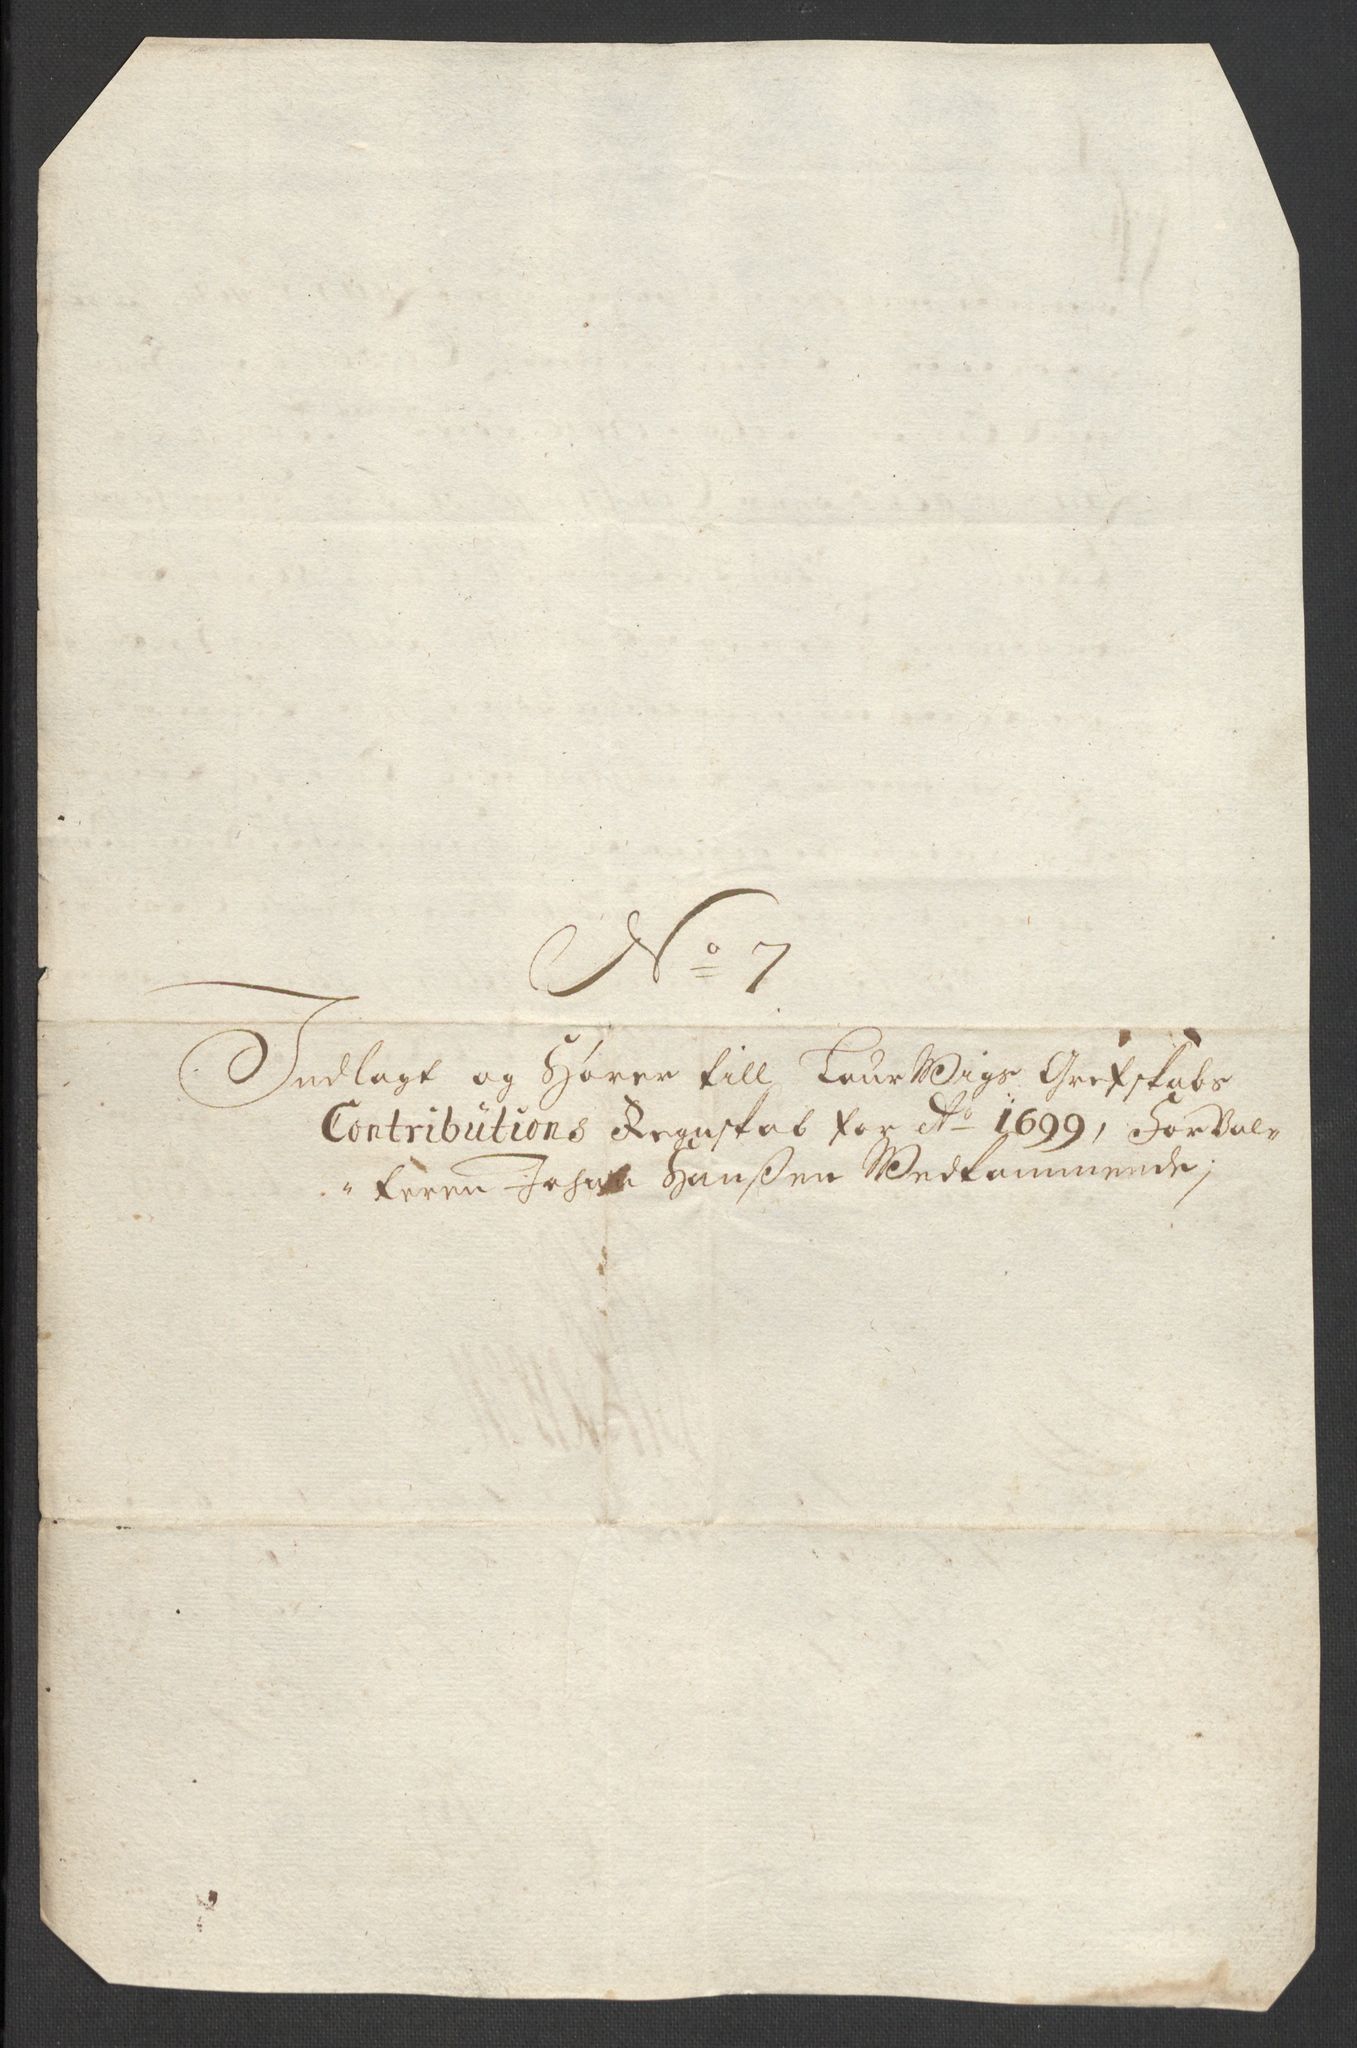 No 7
Indlagt og Hører till LaurWigs Grefskabs
Contributions Regnskab for Ao 1699, ForVal=
=teren Johan Hanßen Wedkommende;